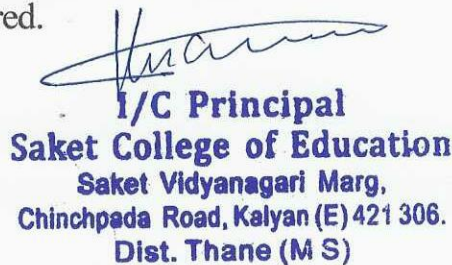 red.
I/C Principal
Saket College of Education
Saket Vidyanagari Marg,
Chinchpada Road, Kalyan (E) 421 306.
Dist. Thane (M S)